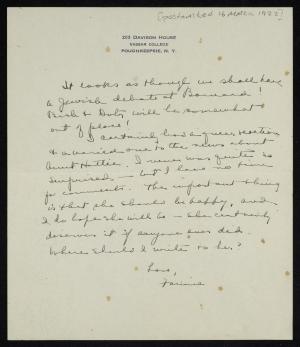 [postmarked 16 March 1922]
203 DAVISON HOUSE
VASSAR COLLEGE
POUGHKEEPSIE, N. Y.
It looks as though we shall have
a Jewish debate at Barnard!
& Dot, will be somewhat
out of place!
I certainly had a queer reaction
& a varied one to the news about
Aunt Hattie. I never was quite so
surprised – but I have no time
for comments. The important thing
is that she should be happy, and
I do hope she will be – she certainly
deserves it if anyone ever did.
Where should I write to her?
Love,